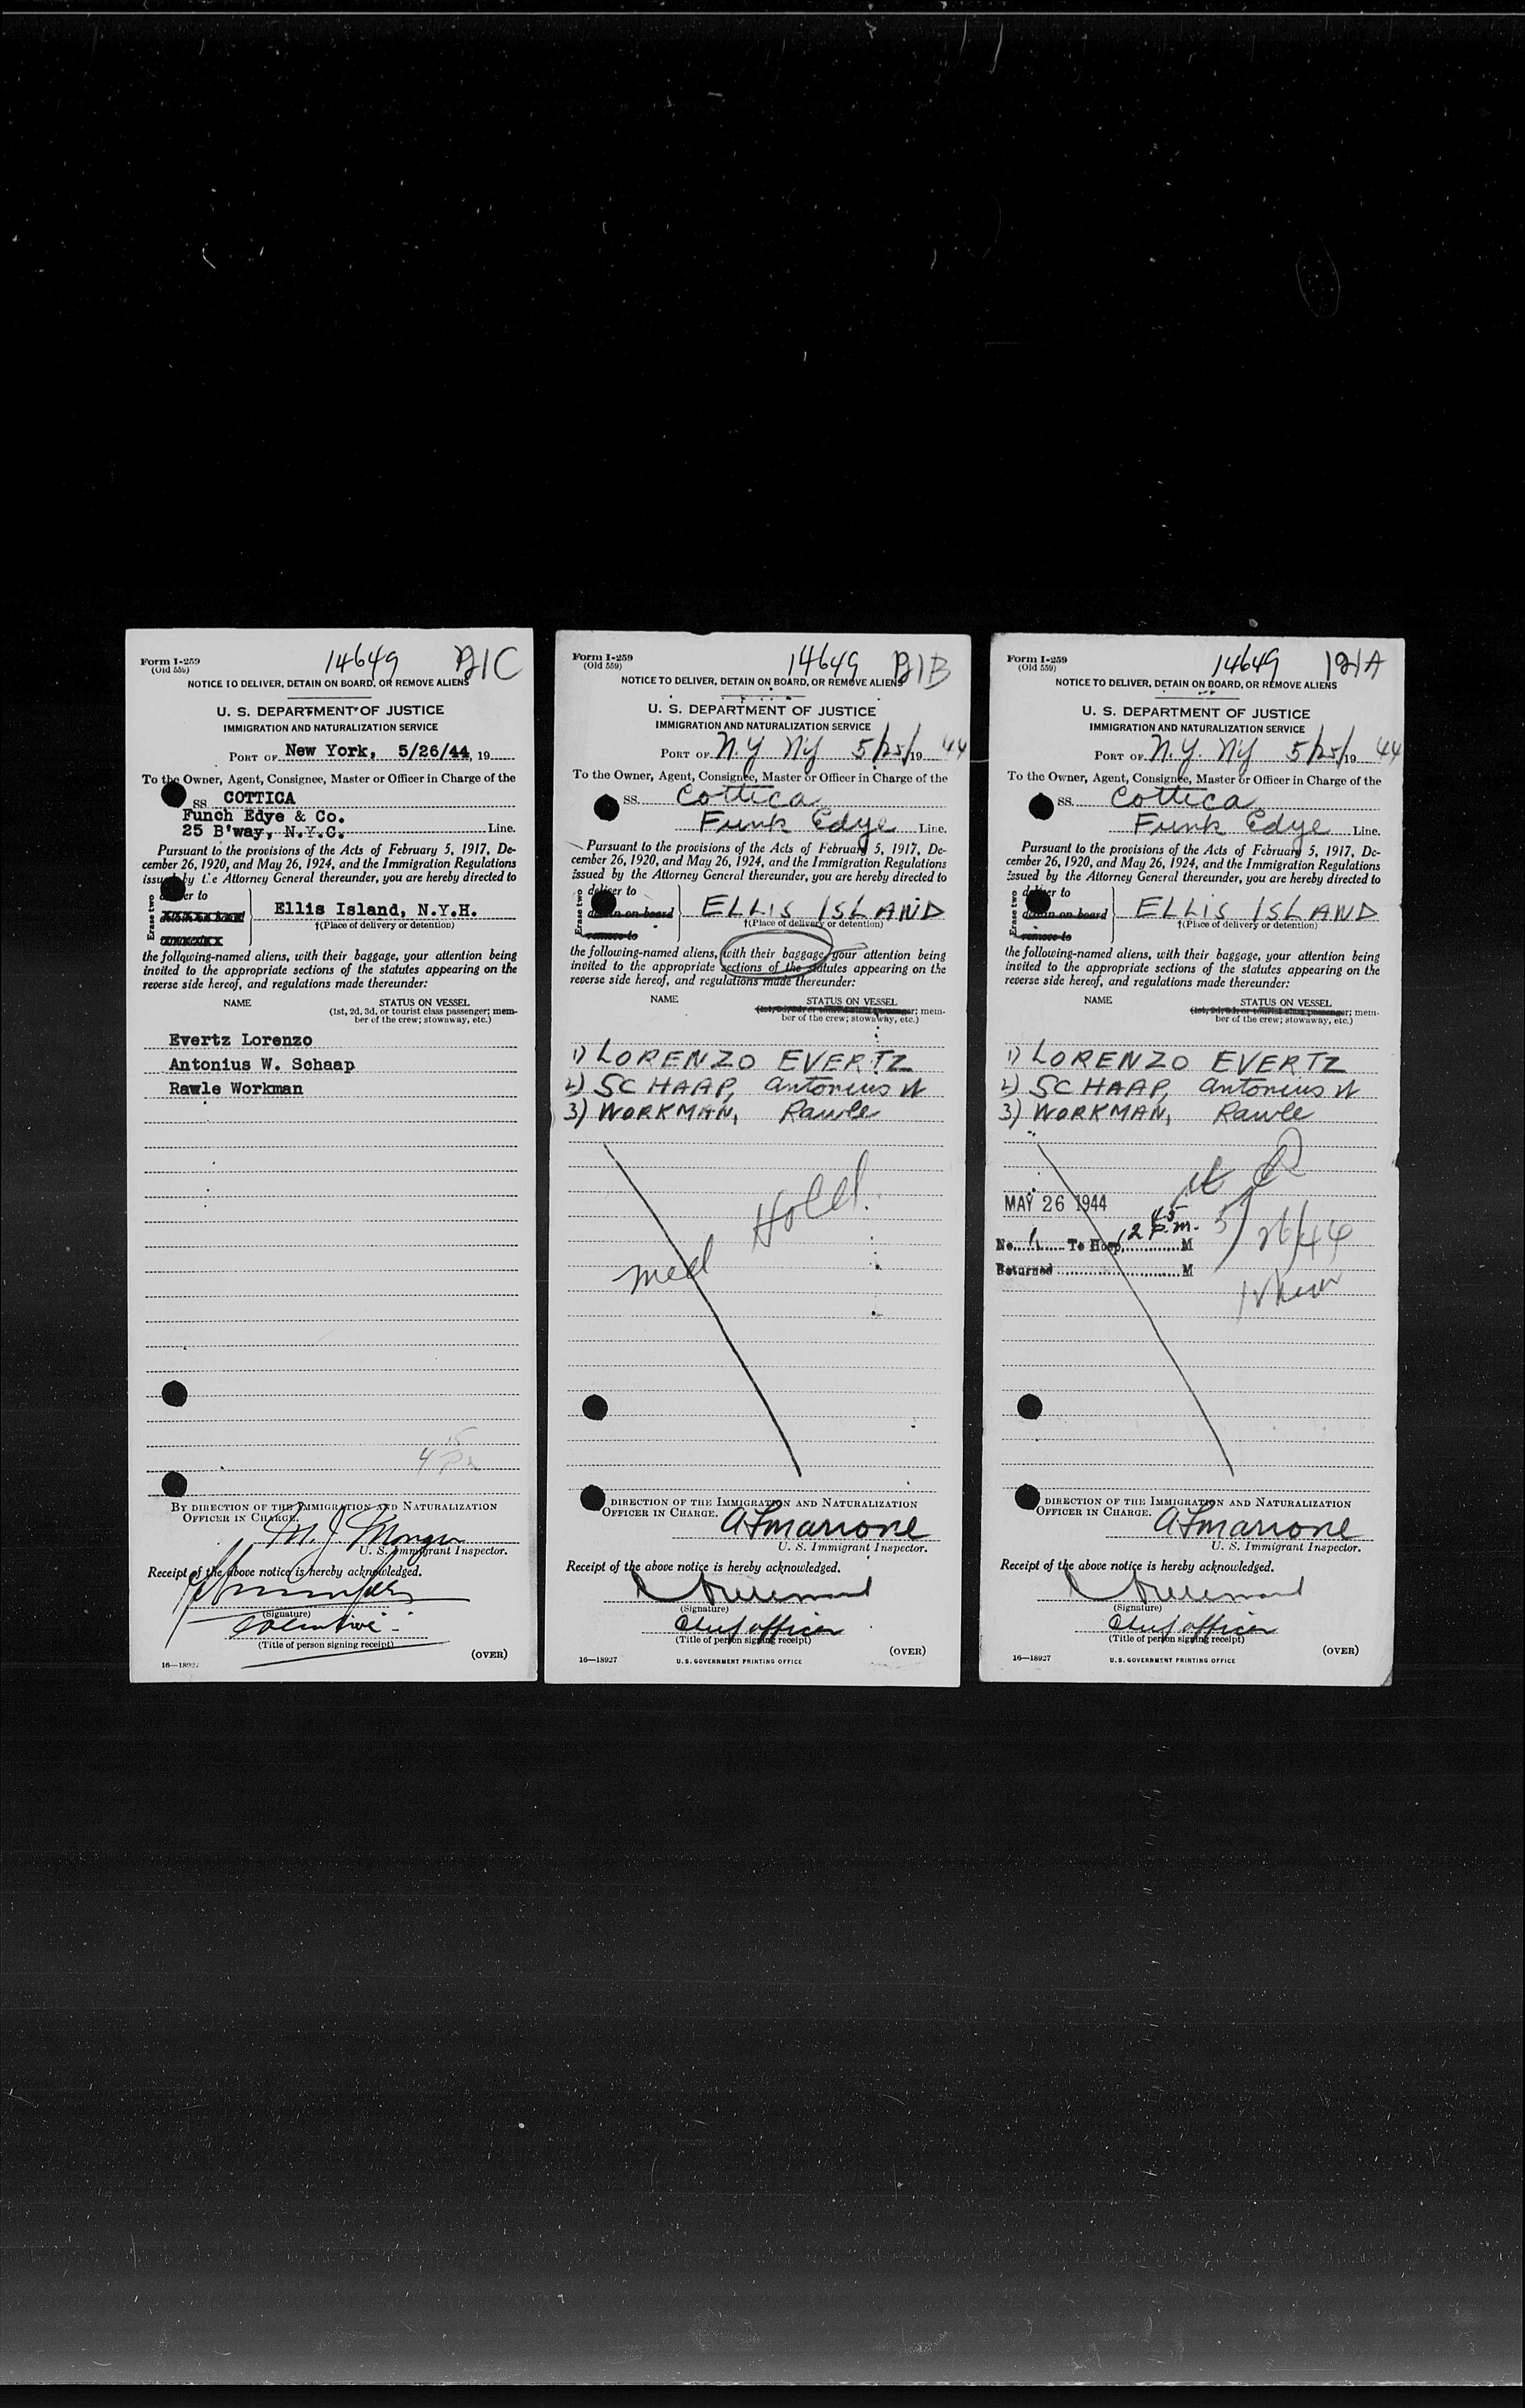 Form I-259
(Old 559)
14649
NOTICE TO DELIVER, DETAIN ON BOARD, OR REMOVE ALIENS
U. S. DEPARTMENT OF JUSTICE
IMMIGRATION AND NATURALIZATION SERVICE
PORT OF New York, 5/26/44, 19
To the Owner, Agent, Consignee, Master or Officer in Charge of the
SS COTTICA
Funch Edye & Co.
25 B'way, N.Y.C. Line.
Pursuant to the provisions of the Acts of February 5, 1917, De-
cember 26, 1920, and May 26, 1924, and the Immigration Regulations
issued by the Attorney General thereunder, you are hereby directed to
Erase two
er to
Ellis Island, N.Y.H.
†(Place of delivery or detention)
the following-named aliens, with their baggage, your attention being
invited to the appropriate sections of the statutes appearing on the
reverse side hereof, and regulations made thereunder:
NAME STATUS ON VESSEL
(1st, 2d, 3d, or tourist class passenger; mem-
ber of the crew; stowaway, etc.)
Evertz Lorenzo
Antonius W. Schaap
Rawle Workman
BY DIRECTION OF THE IMMIGRATION AND NATURALIZATION
OFFICER IN CHARGE.
U. S. Immigrant Inspector.
Receipt of the above notice is hereby acknowledged.
(Signature)
(Title of person signing receipt)
(OVER)
Form I-259
(Old 559)
14649 121B
NOTICE TO DELIVER, DETAIN ON BOARD, OR REMOVE ALIENS
U. S. DEPARTMENT OF JUSTICE
IMMIGRATION AND NATURALIZATION SERVICE
PORT OF N.Y. NY 5/25/19 44
To the Owner, Agent, Consignee, Master or Officer in Charge of the
SS. Cottica
Funk Edye Line.
Pursuant to the provisions of the Acts of February 5, 1917, De-
cember 26, 1920, and May 26, 1924, and the Immigration Regulations
issued by the Attorney General thereunder, you are hereby directed to
Erase two
deliver to
detain on board
remove to
ELLIS ISLAND
†(Place of delivery or detention)
the following-named aliens, with their baggage, your attention being
invited to the appropriate sections of the statutes appearing on the
reverse side hereof, and regulations made thereunder:
NAME STATUS ON VESSEL
(1st, 2d, 3d, or tourist class passenger; mem-
ber of the crew; stowaway, etc.)
1) LORENZO EVERTZ
2) SCHAAP, Antonius W
3) WORKMAN, Rawle
Hold
med
DIRECTION OF THE IMMIGRATION AND NATURALIZATION
OFFICER IN CHARGE.
U. S. Immigrant Inspector.
Receipt of the above notice is hereby acknowledged.
(Signature)
Chief officer
(Title of person signing receipt)
(OVER)
16—18927
U.S. GOVERNMENT PRINTING OFFICE
Form I-259
(Old 559)
14649 121A
NOTICE TO DELIVER, DETAIN ON BOARD, OR REMOVE ALIENS
U. S. DEPARTMENT OF JUSTICE
IMMIGRATION AND NATURALIZATION SERVICE
PORT OF N.Y. NY 5/25/19 44
To the Owner, Agent, Consignee, Master or Officer in Charge of the
SS. Cottica
Funk Edye Line.
Pursuant to the provisions of the Acts of February 5, 1917, De-
cember 26, 1920, and May 26, 1924, and the Immigration Regulations
issued by the Attorney General thereunder, you are hereby directed to
Erase two
deliver to
detain on board
remove to
ELLIS ISLAND
†(Place of delivery or detention)
the following-named aliens, with their baggage, your attention being
invited to the appropriate sections of the statutes appearing on the
reverse side hereof, and regulations made thereunder:
NAME STATUS ON VESSEL
(1st, 2d, 3d, or tourist class passenger; mem-
ber of the crew; stowaway, etc.)
1) LORENZO EVERTZ
2) SCHAAP, Antonius W
3) WORKMAN, Rawle
MAY 26 1944
No. 1 To Hosp. 12 45 P.m. M
5/26/44
Returned M
DIRECTION OF THE IMMIGRATION AND NATURALIZATION
OFFICER IN CHARGE.
U. S. Immigrant Inspector.
Receipt of the above notice is hereby acknowledged.
(Signature)
Chief officer
(Title of person signing receipt)
(OVER)
16—18927
U.S. GOVERNMENT PRINTING OFFICE